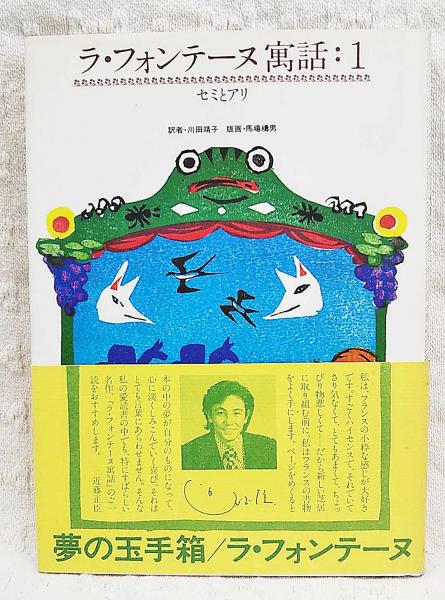 ラ・フォンテーヌ寓話:1
セミとアリ
訳者・川田靖子 版画・馬場檮男
私は、フランスの小粋な感じが大好き
です。すごくハイセンスで、それでいて
さり気なくて、とてもあまくて、ちょっ
ぴり物悲しくて……だから新しい芝居
に取り組む前に、私はフランスの書物
をよく手にします。ページをめくると
本の中の夢が自分のものになって、
心に淡くしみこんでいく喜び。それは
とても言葉にあらわせません。そんな
私の愛読書の中でも、特にすばらしい
名作、『ラ・フォンテーヌ寓話』のご一
読をおすすめします。
近藤正臣
夢の玉手箱/ラ・フォンテーヌ